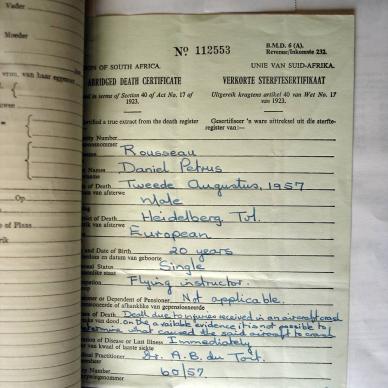 Vader
Moeder
vrou, van haar eggenoot
Op
of Plans
No 112553
B.M.D. 6 (A).
Revenue/Inkomste 232.
ON OF SOUTH AFRICA.
UNIE VAN SUID-AFRIKA.
ABRIDGED DEATH CERTIFICATE
VERKORTE STERFTESERTIFIKAAT
ed in terms of Section 40 of Act No. 17 of 1923.
Uitgereik kragtens artikel 40 van Wet No. 17 van 1923.
rtified a true extract from the death register
Gesertifiseer 'n ware uittreksel uit die sterfte-register van:—
Number
Rousseau
Names
Daniel Petrus
of Death
van afsterwe
Tweede Augustus, 1957
Male
of Death
van afsterwe
Heidelberg Tvl.
European
and Date of Birth
en datum van geboorte
20 years
Status
Single
Flying instructor.
or Dependent of Pensioner
of afhanklike van gepensioeneerde
Not applicable.
of Death
van dood.
Death due to injuries received in an aircraft crash
on the available evidence it is not possible to
determine what caused the said aircraft to crash
of Disease or Last Illness
van kwaal of laaste siekte
Immediately
Practitioner
Dr. A.B. du Toit.
Number
60/57